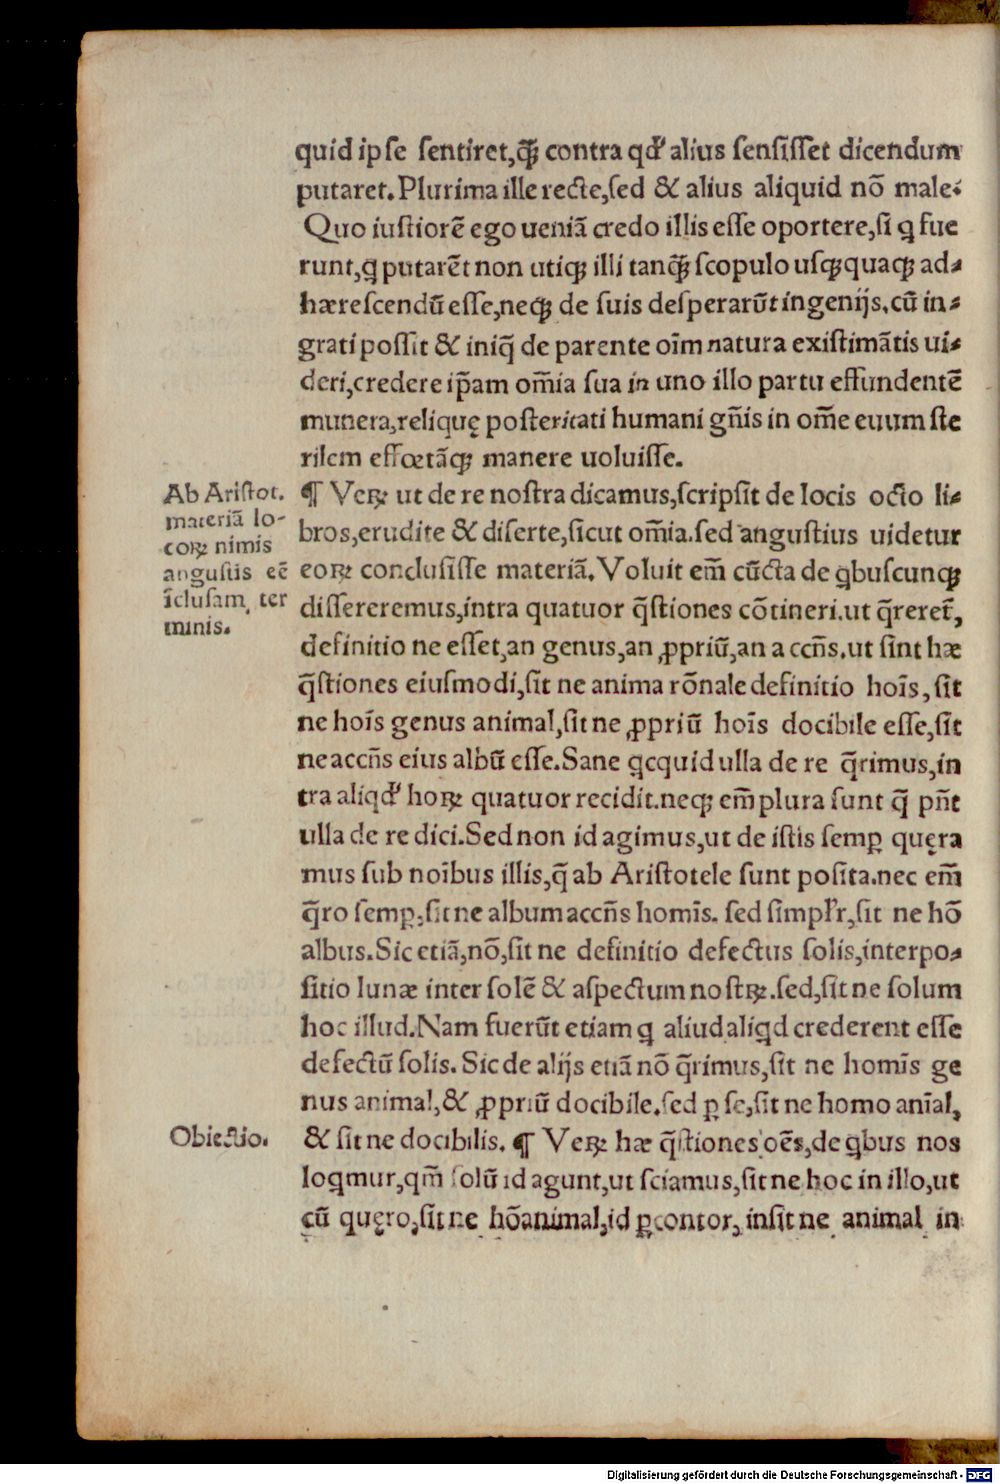 quid ipse sentiret,q̃ꝫ contra qđ alius sensisset dicendum
putaret. Plurima ille recte,sed & alius aliquid nõ male.
Quo iustiorẽ ego ueniã credo illis esse oportere,si ꝗ fue
runt,ꝗ putarẽt non utiqꝫ illi tanq̃ꝫ scopulo usqꝫquaqꝫ ad-
hærescendũ esse,neqꝫ de suis desperarũt ingenijs.cũ in-
grati possit & iniq̃ de parente oĩm natura existimãtis ui-
deri,credere ip̃am om̃ia sua in uno illo partu effundentẽ
munera,reliquę posteritati humani gñis in om̃e euum ste
rilem effœtãqꝫ manere uoluisse.
Ab Aristot.
materiã lo-
coꝝ nimis
angustis eẽ
ĩclusam ter
minis.
¶ Veꝝ ut de re nostra dicamus,scripsit de locis octo li-
bros,erudite & diserte,sicut om̃ia.sed angustius uidetur
eoꝝ conclusisse materiã. Voluit em̃ cũcta de ꝗbuscunqꝫ
dissereremus,intra quatuor q̃stiones cõtineri.ut q̃reret̃,
definitio ne esset,an genus,an ꝓpriũ,an accñs.ut sint hæ
q̃stiones eiusmodi,sit ne anima rõnale definitio hoĩs,sit
ne hoĩs genus animal,sit ne ꝓpriũ hoĩs docibile esse,sit
ne accñs eius albũ esse.Sane ꝗcquid ulla de re q̃rimus,in
tra aliqđ hoꝝ quatuor recidit.neqꝫ em̃ plura sunt q̃ pñt
ulla de re dici.Sed non id agimus,ut de istis semꝑ quęra
mus sub noĩbus illis,q̃ ab Aristotele sunt posita.nec em̃
q̃ro semꝑ,sit ne album accñs homĩs. sed simpłr,sit ne hõ
albus.Sic etiã,nõ,sit ne definitio defectus solis,interpo-
sitio lunæ inter solẽ & aspectum nostꝝ.sed,sit ne solum
hoc illud.Nam fuerũt etiam ꝗ aliud aliꝗd crederent esse
defectũ solis. Sic de alijs etiã nõ q̃rimus,sit ne homĩs ge
nus animal,& ꝓpriũ docibile.sed ꝑ se,sit ne homo anĩal,
Obiectio.
& sit ne docibilis. ¶ Veꝝ hæ q̃stiones oẽs,de ꝗbus nos
loꝗmur,qm̃ solũ id agunt,ut sciamus,sit ne hoc in illo,ut
cũ quęro,sit ne hõ animal,id ꝑcontor, insit ne animal in
Digitalisierung gefördert durch die Deutsche Forschungsgemeinschaft - DFG